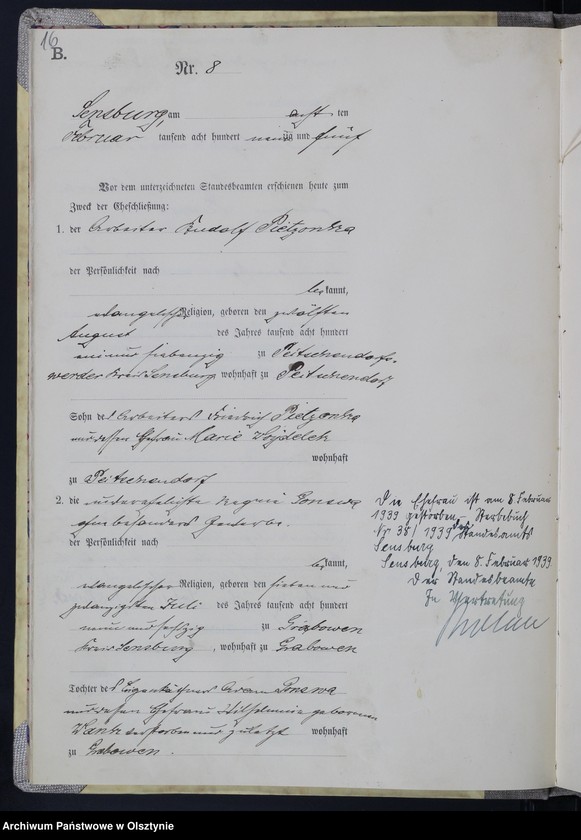 16
B.
Nr. 8
Sensburg, am acht ten
Februar tausend acht hundert neunzig und fünf
Vor dem unterzeichneten Standesbeamten erschienen heute zum
Zweck der Eheschließung:
1. der Arbeiter Rudolf Pietzonka
der Persönlichkeit nach
bekannt,
evangelischer Religion, geboren den zwölften
August des Jahres tausend acht hundert
ein und siebenzig zu Peitschendorfs-
werder Kreis Sensburg wohnhaft zu Peitschendorf
Sohn des Arbeiters Friedrich Pietzonka
und dessen Ehefrau Marie
wohnhaft
zu Peitschendorf
2. die unverehelichte
ohne besonderes Gewerbe.
der Persönlichkeit nach
bekannt,
evangelischer Religion, geboren den sieben und
zwanzigsten Juli des Jahres tausend acht hundert
neun und sechzig zu Grabowen
Kreis Sensburg, wohnhaft zu Grabowen
Tochter des
und dessen Ehefrau Wilhelmine geborenen
verstorben und zuletzt wohnhaft
zu Grabowen.
Die Ehefrau ist am 8. Februar
1939 gestorben. Sterbebuch
Nr 38/1939 des Standesamts
Sensburg
Sensburg, den 8. Februar 1939
Der Standesbeamte
In Vertretung
Archiwum Państwowe w Olsztynie